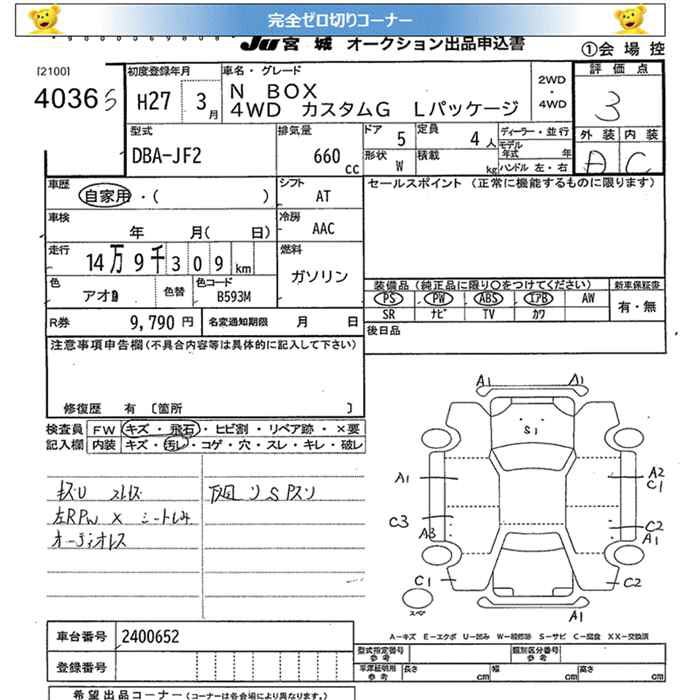 完全ゼロ切りコーナー
JU 宮城 オークション出品申込書 ①会場控
[2100] 初度登録年月 車名・グレード 2WD・4WD 評価点
4036 H27 3月 N BOX 3
4WD カスタムG Lパッケージ
外装 内装
D C
型式 排気量 ドア 5 定員 4人 ディーラー・並行
DBA-JF2 660cc 形状 W 積載 kg モデル年式 年
ハンドル 左・右
車歴 自家用・( ) シフト AT セールスポイント (正常に機能するものに限ります)
車検 年 月( 日) 冷房 AAC
走行 14万9千309km 燃料 ガソリン
色 アオ 色替 色コード B593M
装備品 (純正品に限り○をつけてください) 新車保証書
PS PW ABS エアB AW 有・無
SR ナビ TV カワ
R券 9,790円 名変通知期限 月 日 後日品
注意事項申告欄(不具合内容等は具体的に記入して下さい)
修復歴 有 〔箇所 〕
検査員 FW キズ・飛石・ヒビ割・リペア跡・×要
記入欄 内装 キズ・汚レ・コゲ・穴・スレ・キレ・破レ
キズU スレズ 下回リSアスリ
左RPW × シートしみ
オーディオレス
A1 A1
S1
A1 A2
C1
C3 C2
A3 A1
C1 C2
スペア A1
A-キズ E-エクボ U-凹み W-補修跡 S-サビ C-腐食 XX-交換済
車台番号 2400652
型式指定番号 参考 類別区分番号 参考
登録番号
車庫証明用 参考 長さ cm 幅 cm 高さ cm
希望出品コーナー (コーナーは各会場により異なります。)